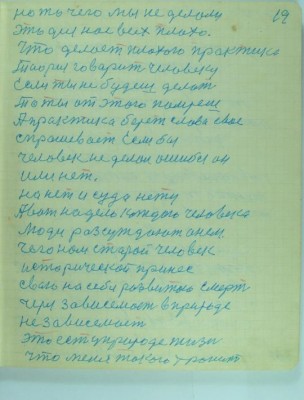 19
но то чего мы не делали
Это для нас всех плохо.
Что делает плохого практика
Теория говорит человеку
Если ты не будеш делат
То ты от этого помреш
А практика берет слова свое
спрашивает Если бы
человек не делал ошибки он
или нет.
на нет и суда нету
А вот на дело каждого человека
Люди рассуждают онем
чего нам старой человек
исторической принес
свою на себя развитою смерт
Чем зависемост в природе
независемост
Это ест у природе жизн
что меня такого